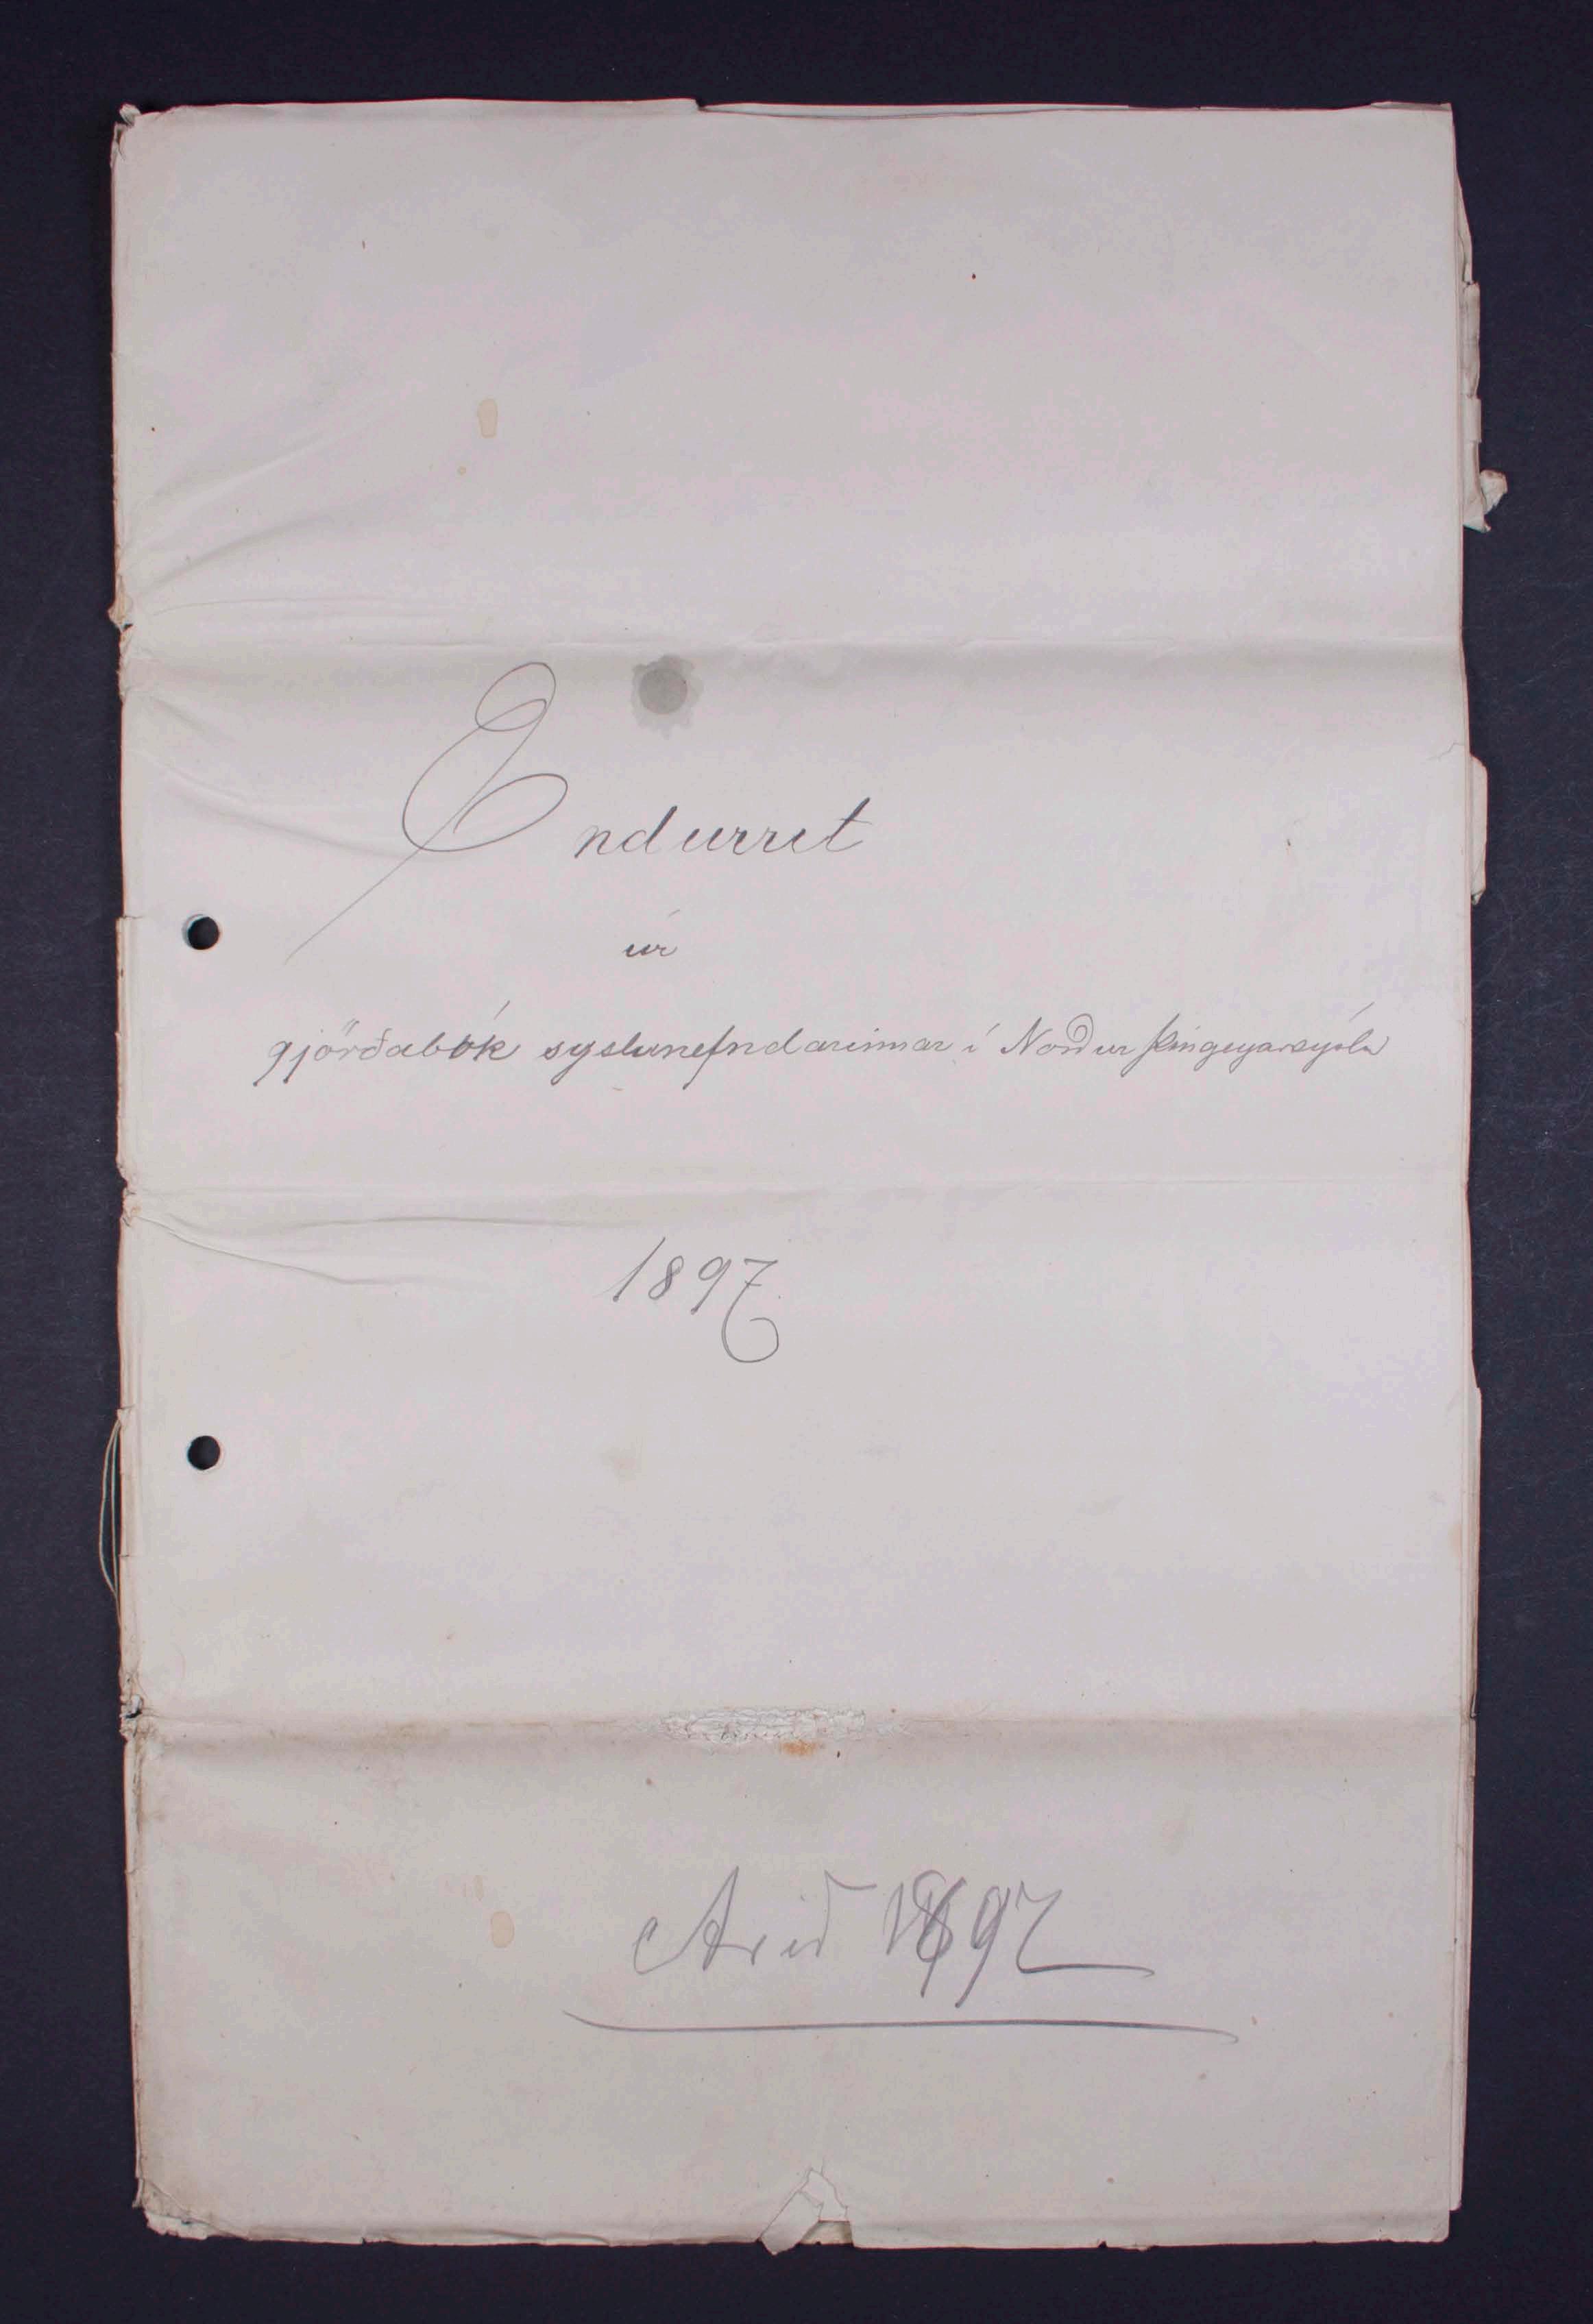 Endurrit
úr
gjörðabók syslunefndarinnar í Norður Þingeyarsýslu
1897
Arið 1897